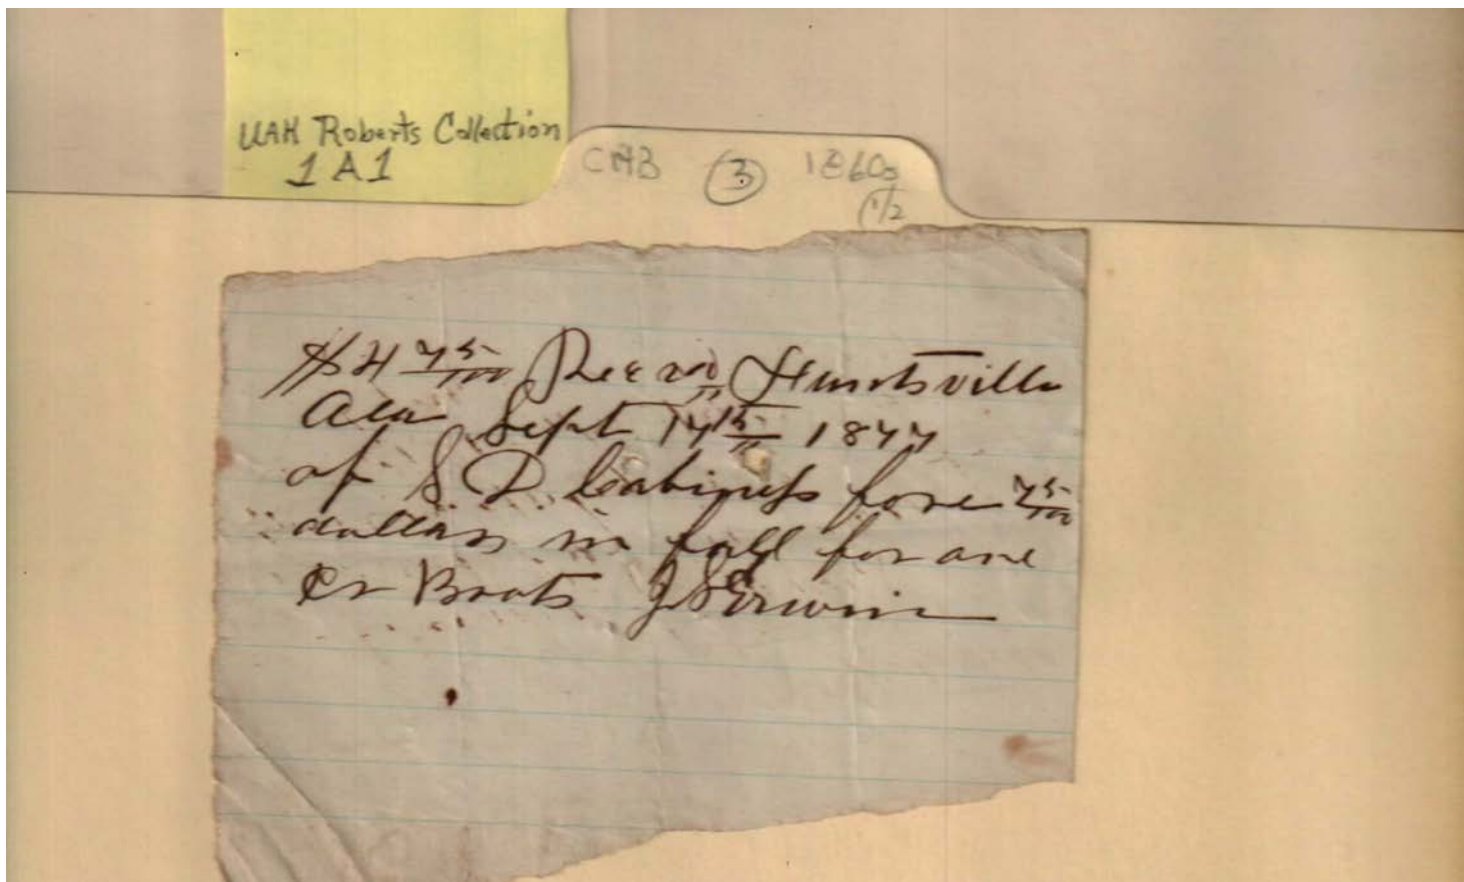 UAH Roberts Collection
1A1
CAB ③ 1860s
1/2
$4 75/100 Recd Huntsville
Ala Sept 1877
of S D Cabiness 75/100
dollars in full for one
Pr Boots J S Erwin